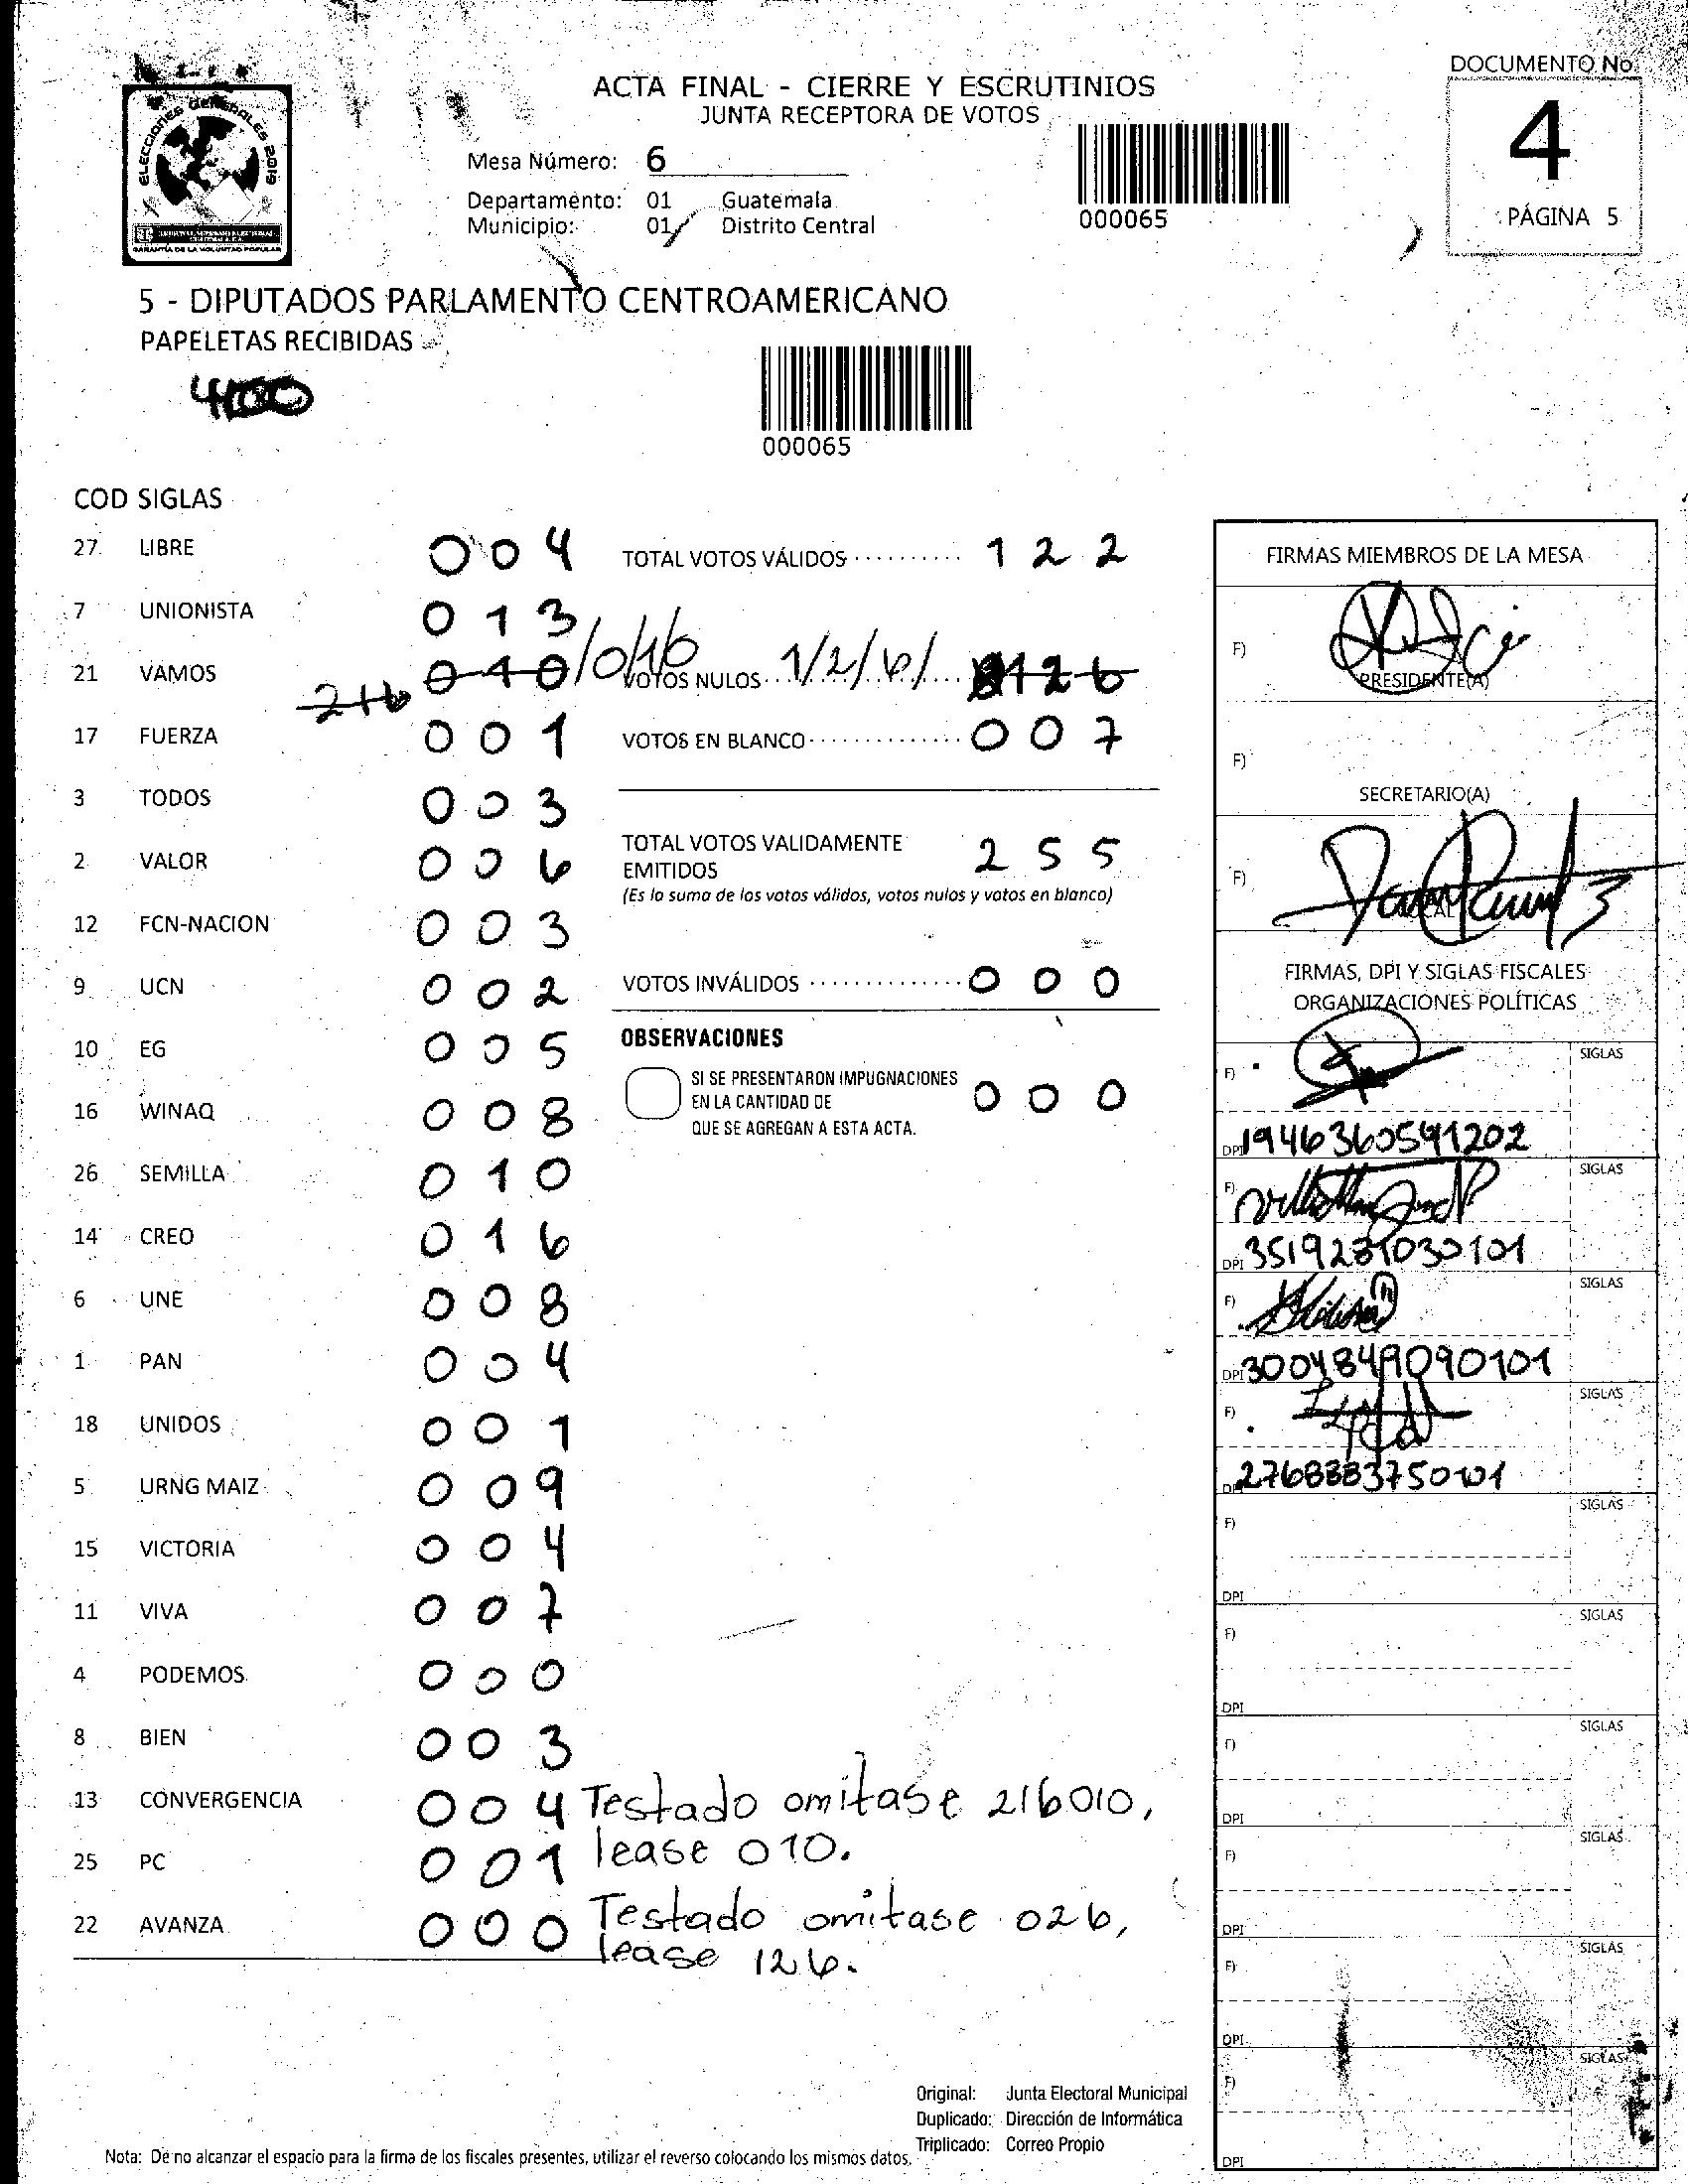 DOCUMENTO No.
4
PÁGINA 5
ACTA FINAL - CIERRE Y ESCRUTINIOS
JUNTA RECEPTORA DE VOTOS
ELECCIONES GENERALES 2019
Mesa Número: 6
Departamento: 01 Guatemala
Municipio: 01 Distrito Central
000065
5 - DIPUTADOS PARLAMENTO CENTROAMERICANO
PAPELETAS RECIBIDAS
400
000065
COD SIGLAS
27 LIBRE 004
7 UNIONISTA 013
21 VAMOS 216 010 /010
17 FUERZA 001
3 TODOS 003
2 VALOR 006
12 FCN-NACION 003
9 UCN 002
10 EG 005
16 WINAQ 008
26 SEMILLA 010
14 CREO 016
6 UNE 008
1 PAN 004
18 UNIDOS 001
5 URNG MAIZ 009
15 VICTORIA 004
11 VIVA 007
4 PODEMOS 000
8 BIEN 003
13 CONVERGENCIA 004
25 PC 001
22 AVANZA 000
TOTAL VOTOS VÁLIDOS 122
VOTOS NULOS 1/2/6/ 126
VOTOS EN BLANCO 007
TOTAL VOTOS VALIDAMENTE
EMITIDOS 255
(Es la suma de los votos válidos, votos nulos y votos en blanco)
VOTOS INVÁLIDOS 000
OBSERVACIONES
SI SE PRESENTARON IMPUGNACIONES
EN LA CANTIDAD DE 000
QUE SE AGREGAN A ESTA ACTA.
Testado omitase 216010,
lease 010.
Testado omitase 026,
lease 126.
FIRMAS MIEMBROS DE LA MESA
F)
PRESIDENTE(A)
F)
SECRETARIO(A)
F)
FIRMAS, DPI Y SIGLAS FISCALES
ORGANIZACIONES POLÍTICAS
F) SIGLAS
DPI 1946360591202
F) SIGLAS
DPI 3519231030101
F) SIGLAS
DPI 3004849090101
F) SIGLAS
DPI 2768883750101
F) SIGLAS
DPI
F) SIGLAS
DPI
F) SIGLAS
DPI
F) SIGLAS
DPI
F) SIGLAS
DPI
F) SIGLAS
DPI
Original: Junta Electoral Municipal
Duplicado: Dirección de Informática
Triplicado: Correo Propio
Nota: De no alcanzar el espacio para la firma de los fiscales presentes, utilizar el reverso colocando los mismos datos.